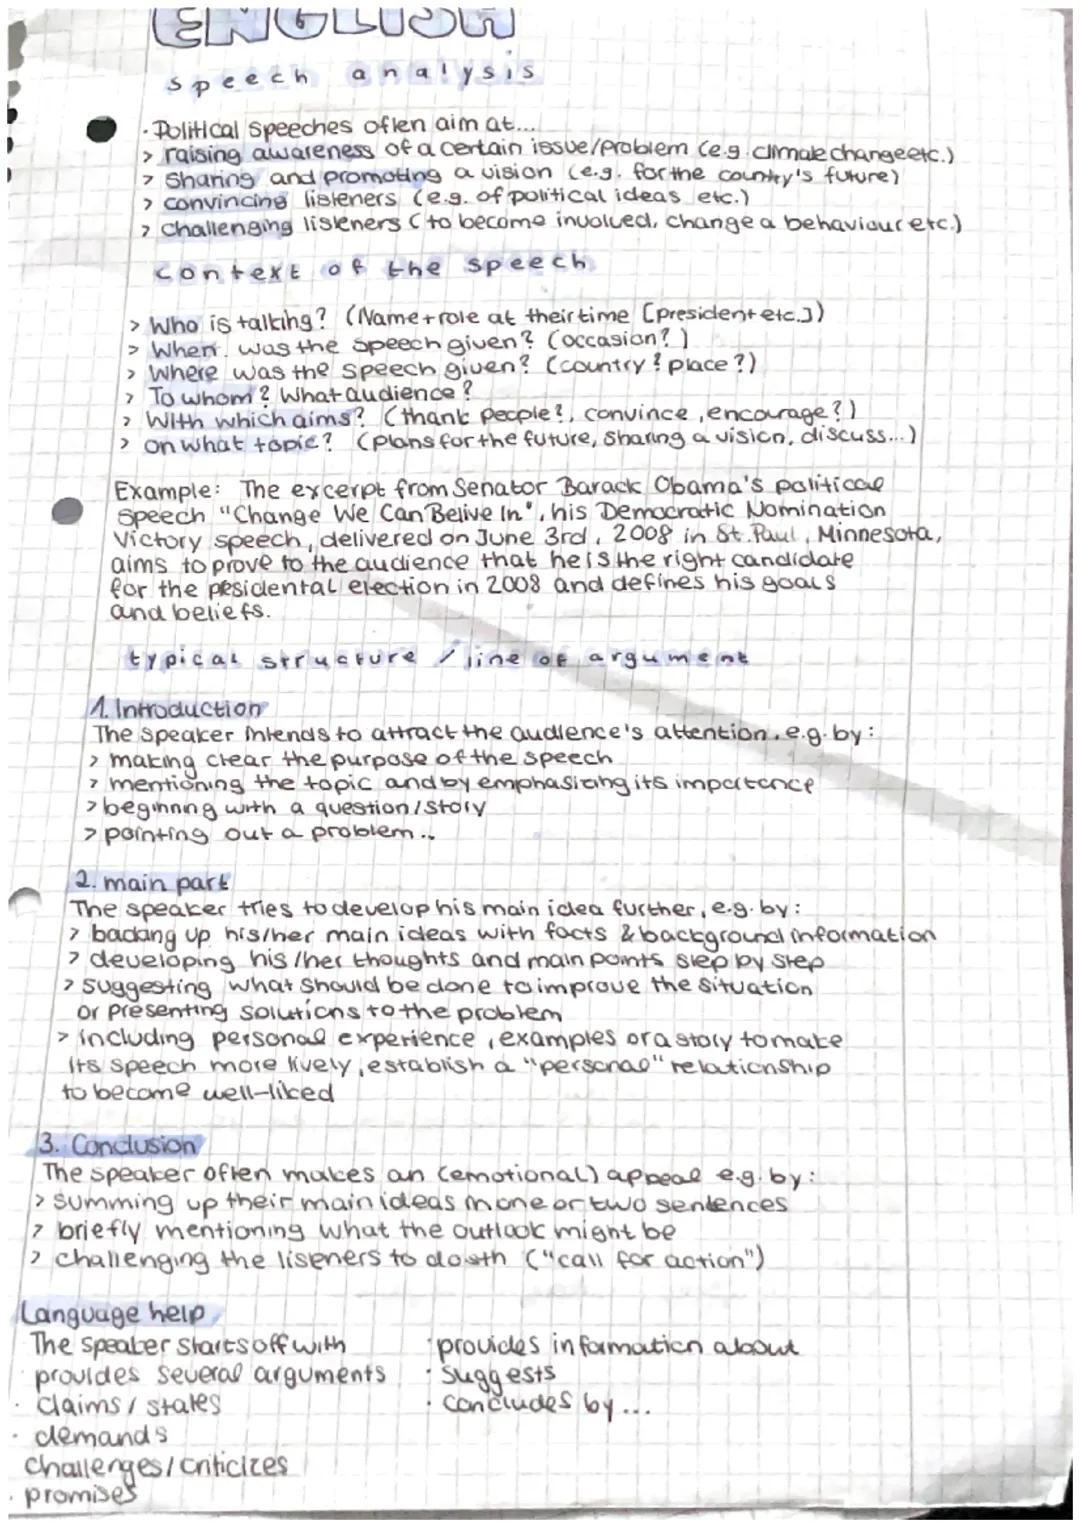 ENGLISH
speech analysis
· Political speeches often aim at...
> raising awareness of a certain issue/problem (e.g. climate change etc.)
> Sharing and promoting a vision (e.g. for the country's future)
> convincing listeners (e.g. of political ideas etc.)
> challenging listeners (to become involved, change a behaviour etc.)
context of the speech
> Who is talking? (Name + role at their time [president etc.])
> When was the speech given? (occasion?)
> Where was the speech given? (country? place?)
> To whom? What audience?
> With which aims? (thank people?, convince, encourage?)
> on what topic? (plans for the future, sharing a vision, discuss...)
Example: The excerpt from Senator Barack Obama's political
speech "Change We Can Belive In", his Democratic Nomination
Victory speech, delivered on June 3rd, 2008 in St. Paul, Minnesota,
aims to prove to the audience that he is the right candidate
for the presidental election in 2008 and defines his goals
and beliefs.
typical structure / line of argument
1. Introduction
The speaker intends to attract the audience's attention, e.g. by:
> making clear the purpose of the speech
> mentioning the topic and by emphasizing its importance
> beginning with a question/story
> pointing out a problem...
2. main part
The speaker tries to develop his main idea further, e.g. by:
> backing up his/her main ideas with facts & background information
> developing his/her thoughts and main points step by step
> suggesting what should be done to improve the situation
or presenting solutions to the problem
> including personal experience, examples or a story to make
its speech more lively, establish a "personal" relationship
to become well-liked
3. Conclusion
The speaker often makes an (emotional) appeal e.g. by:
> summing up their main ideas in one or two sentences
> briefly mentioning what the outlook might be
> challenging the listeners to do sth ("call for action")
Language help
The speaker starts off with
· provides several arguments
· claims / states
· demands
challenges/criticizes
· promises
· provides information about
· suggests
· concludes by...